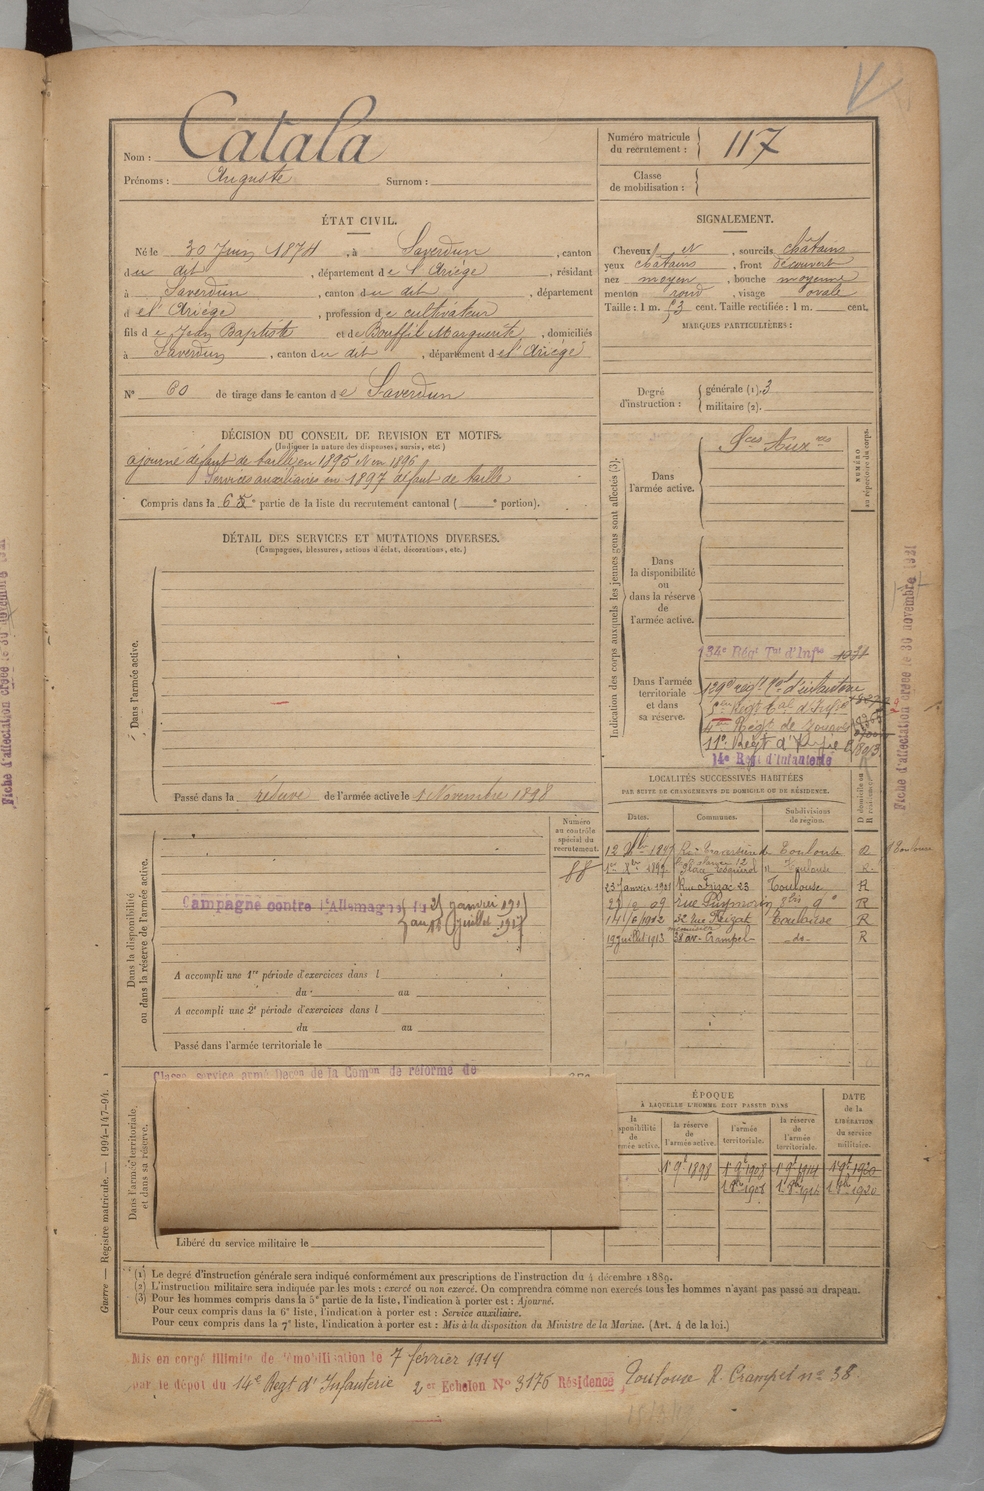 Nom : Catala
Prénoms : Auguste Surnom :
Numéro matricule du recrutement : 117
Classe de mobilisation :
ÉTAT CIVIL.
Né le 30 Juin 1874, à Saverdun, canton
du dit, département de l'Ariège, résidant
à Saverdun, canton du dit, département
d el'Ariège, profession de cultivateur
fils de Jean Baptiste et de Bouffil Marguerite, domiciliés
à Saverdun, canton du dit, département de l'Ariège
N° 60 de tirage dans le canton de Saverdun
SIGNALEMENT.
Cheveux et, sourcils châtains
yeux châtains, front découvert
nez moyen, bouche moyenne
menton rond, visage ovale
Taille : 1 m. 53 cent. Taille rectifiée : 1 m. cent.
MARQUES PARTICULIÈRES :
Degré d'instruction : générale (1). 3
militaire (2).
DÉCISION DU CONSEIL DE REVISION ET MOTIFS.
(Indiquer la nature des dispenses, sursis, etc.)
ajourné défaut de taille en 1895 et en 1896
Services auxiliaires en 1897 défaut de taille
Compris dans la 6e partie de la liste du recrutement cantonal ( e portion).
DÉTAIL DES SERVICES ET MUTATIONS DIVERSES.
(Campagnes, blessures, actions d'éclat, décorations, etc.)
Dans l'armée active.
Passé dans la réserve de l'armée active le 1 Novembre 1898
Indication des corps auxquels les jeunes gens sont affectés (3).
NUMÉRO au répertoire du corps.
Dans l'armée active.
Sces Auxres
Dans la disponibilité ou dans la réserve de l'armée active.
Dans l'armée territoriale et dans sa réserve.
134e Régt Tal d'Infie
129e régt Tal d'infanterie
Régt de Zouaves
11e Régt d'
14e Régt d'Infanterie
LOCALITÉS SUCCESSIVES HABITÉES
PAR SUITE DE CHANGEMENTS DE DOMICILE OU DE RÉSIDENCE.
Dates. Communes. Subdivisions de région. D domicile ou R résidence.
Toulouse D
Place Esquirol 12 Toulouse R
23 Janvier 1901 Rue Frizac 23 Toulouse R
R
1912 Toulouse R
12 Juillet 1913 38 av. Crampel do R
Numéro au contrôle spécial du recrutement.
88
Dans la disponibilité ou dans la réserve de l'armée active.
Campagne contre l'Allemagne du 25 janvier 1915
au Juillet 1917
A accompli une 1re période d'exercices dans l
du au
A accompli une 2e période d'exercices dans l
du au
Passé dans l'armée territoriale le
Dans l'armée territoriale et dans sa réserve.
Classé service armé Décon de la Comon de réforme de
Libéré du service militaire le
ÉPOQUE
À LAQUELLE L'HOMME DOIT PASSER DANS
la réserve de l'armée active. l'armée territoriale. la réserve de l'armée territoriale.
DATE de la LIBÉRATION du service militaire.
1er 9bre 1898 1er 9bre 1908 1er 9bre 1914 1er 9bre 1920
(1) Le degré d'instruction générale sera indiqué conformément aux prescriptions de l'instruction du 4 décembre 1889.
(2) L'instruction militaire sera indiquée par les mots : exercé ou non exercé. On comprendra comme non exercés tous les hommes n'ayant pas passé au drapeau.
(3) Pour les hommes compris dans la 5e partie de la liste, l'indication à porter est : Ajourné.
Pour ceux compris dans la 6e liste, l'indication à porter est : Service auxiliaire.
Pour ceux compris dans la 7e liste, l'indication à porter est : Mis à la disposition du Ministre de la Marine. (Art. 4 de la loi.)
Guerre — Registre matricule. — 1994-147-94.
Mis en congé illimité de démobilisation le 7 février 1919
par le dépôt du 14e Régt d'Infanterie 2e Echelon N° 3176 Résidence Toulouse R. Crampel n° 38.
Fiche d'affectation créée le 30 novembre 1931